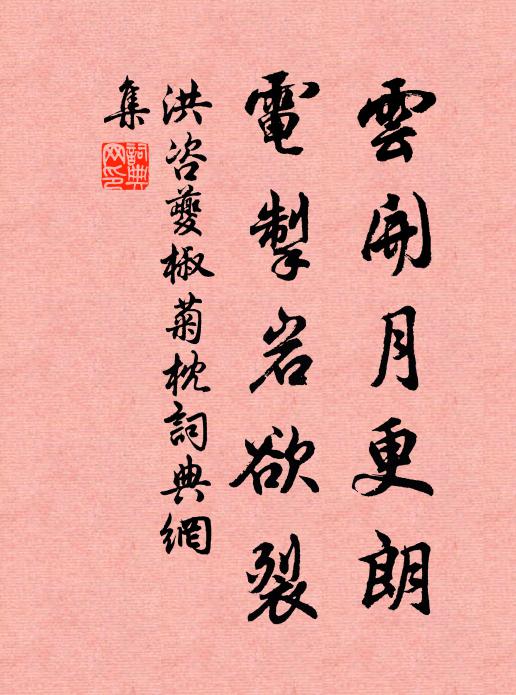 雲開月更朗
電掣岩欲裂
洪咨夔椒菊枕詞典網
集
詞典網印